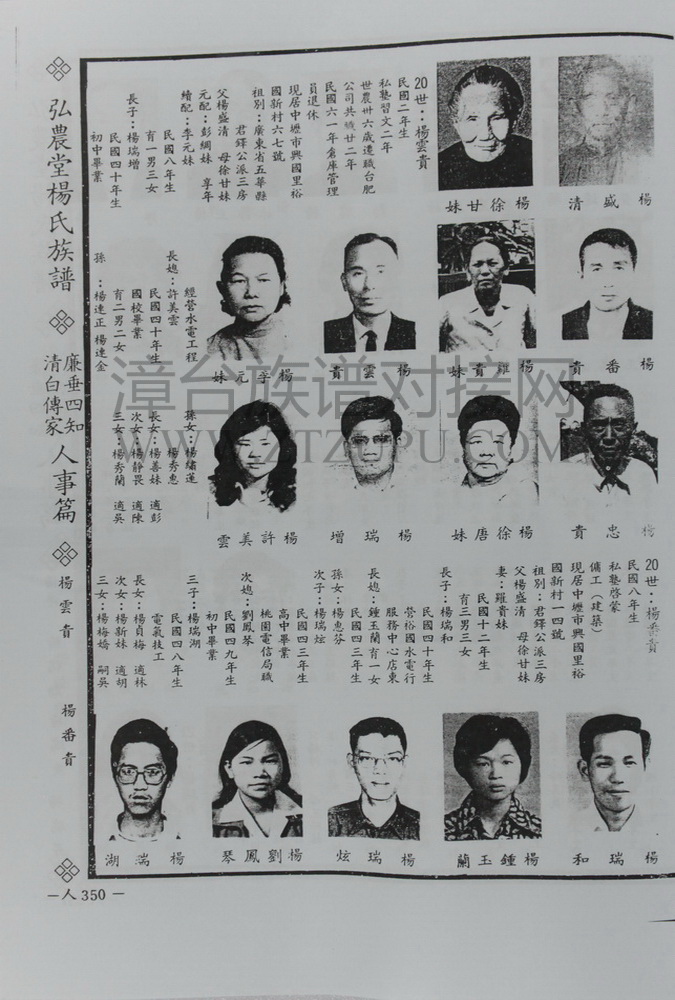 弘農堂楊氏族譜
廉垂四知
清白傳家
人事篇
楊雲貴
楊番貴
—人350—
楊盛清
楊徐甘妹
20世：楊雲貴
民國二年生
私塾習文二年
世農卅六歲遷職台肥
公司共職廿二年
民國六一年倉庫管理
員退休
現居中壢市興國里裕
國新村六七號
祖別：廣東省五華縣
君鐸公派三房
父楊盛清　母徐甘妹
元配：彭綢妹　享年
續配：李元妹
民國八年生
育一男三女
長子：楊瑞增
民國四十年生
初中畢業
楊番貴
楊羅貴妹
楊雲貴
楊李元妹
經營水電工程
長媳：許美雲
民國四十年生
國校畢業
育二男二女
孫：楊連正　楊連金
楊忠貴
楊徐唐妹
楊瑞增
楊許美雲
孫女：楊繡蓮
楊秀惠
長女：楊善妹　適彭
次女：楊靜畏　適陳
三女：楊秀蘭　適吳
20世：楊番貴
民國八年生
私塾啓蒙
傭工（建築）
現居中壢市興國里裕
國新村一四號
祖別：君鐸公派三房
父楊盛清　母徐甘妹
妻：羅貴妹
民國十二年生
育三男三女
長子：楊瑞和
民國四十年生
營裕國水電行
服務中心店東
長媳：鍾玉蘭育一女
民國四三年生
孫女：楊惠芬
次子：楊瑞炫
民國四三年生
高中畢業
桃園電信局職
次媳：劉鳳琴
民國四九年生
初中畢業
三子：楊瑞湖
民國四八年生
電氣技工
長女：楊貞梅　適林
次女：楊新妹　適胡
三女：楊梅嬌　嗣吳
楊瑞和
楊鍾玉蘭
楊瑞炫
楊劉鳳琴
楊瑞湖
漳台族谱对接网
WWW.ZTZUPU.COM